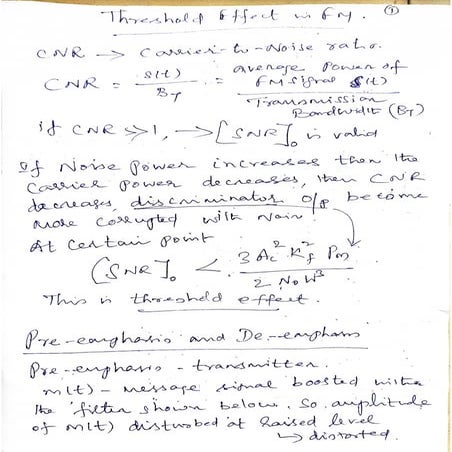 Threshold Effect in FM. 9
CNR → Carrier-to-Noise ratio.
CNR = S(t) / B_T = average Power of FM signal S(t) / Transmission Bandwidth (B_T)
if CNR >>1, → [SNR]o is valid
If Noise Power increases then the
Carrier Power decreases, then CNR
decreases, discriminator o/p become
more corrupted with Noise.
At Certain point
[SNR]o < 3 Ac² Kf² Pm / 2 No W³
This is threshold effect.
Pre-emphasis and De-emphasis
Pre-emphasis - transmitter.
m(t) - message signal boosted with
the filter shown below. So amplitude
of m(t) distorbed at Raised level
↳ distorted.